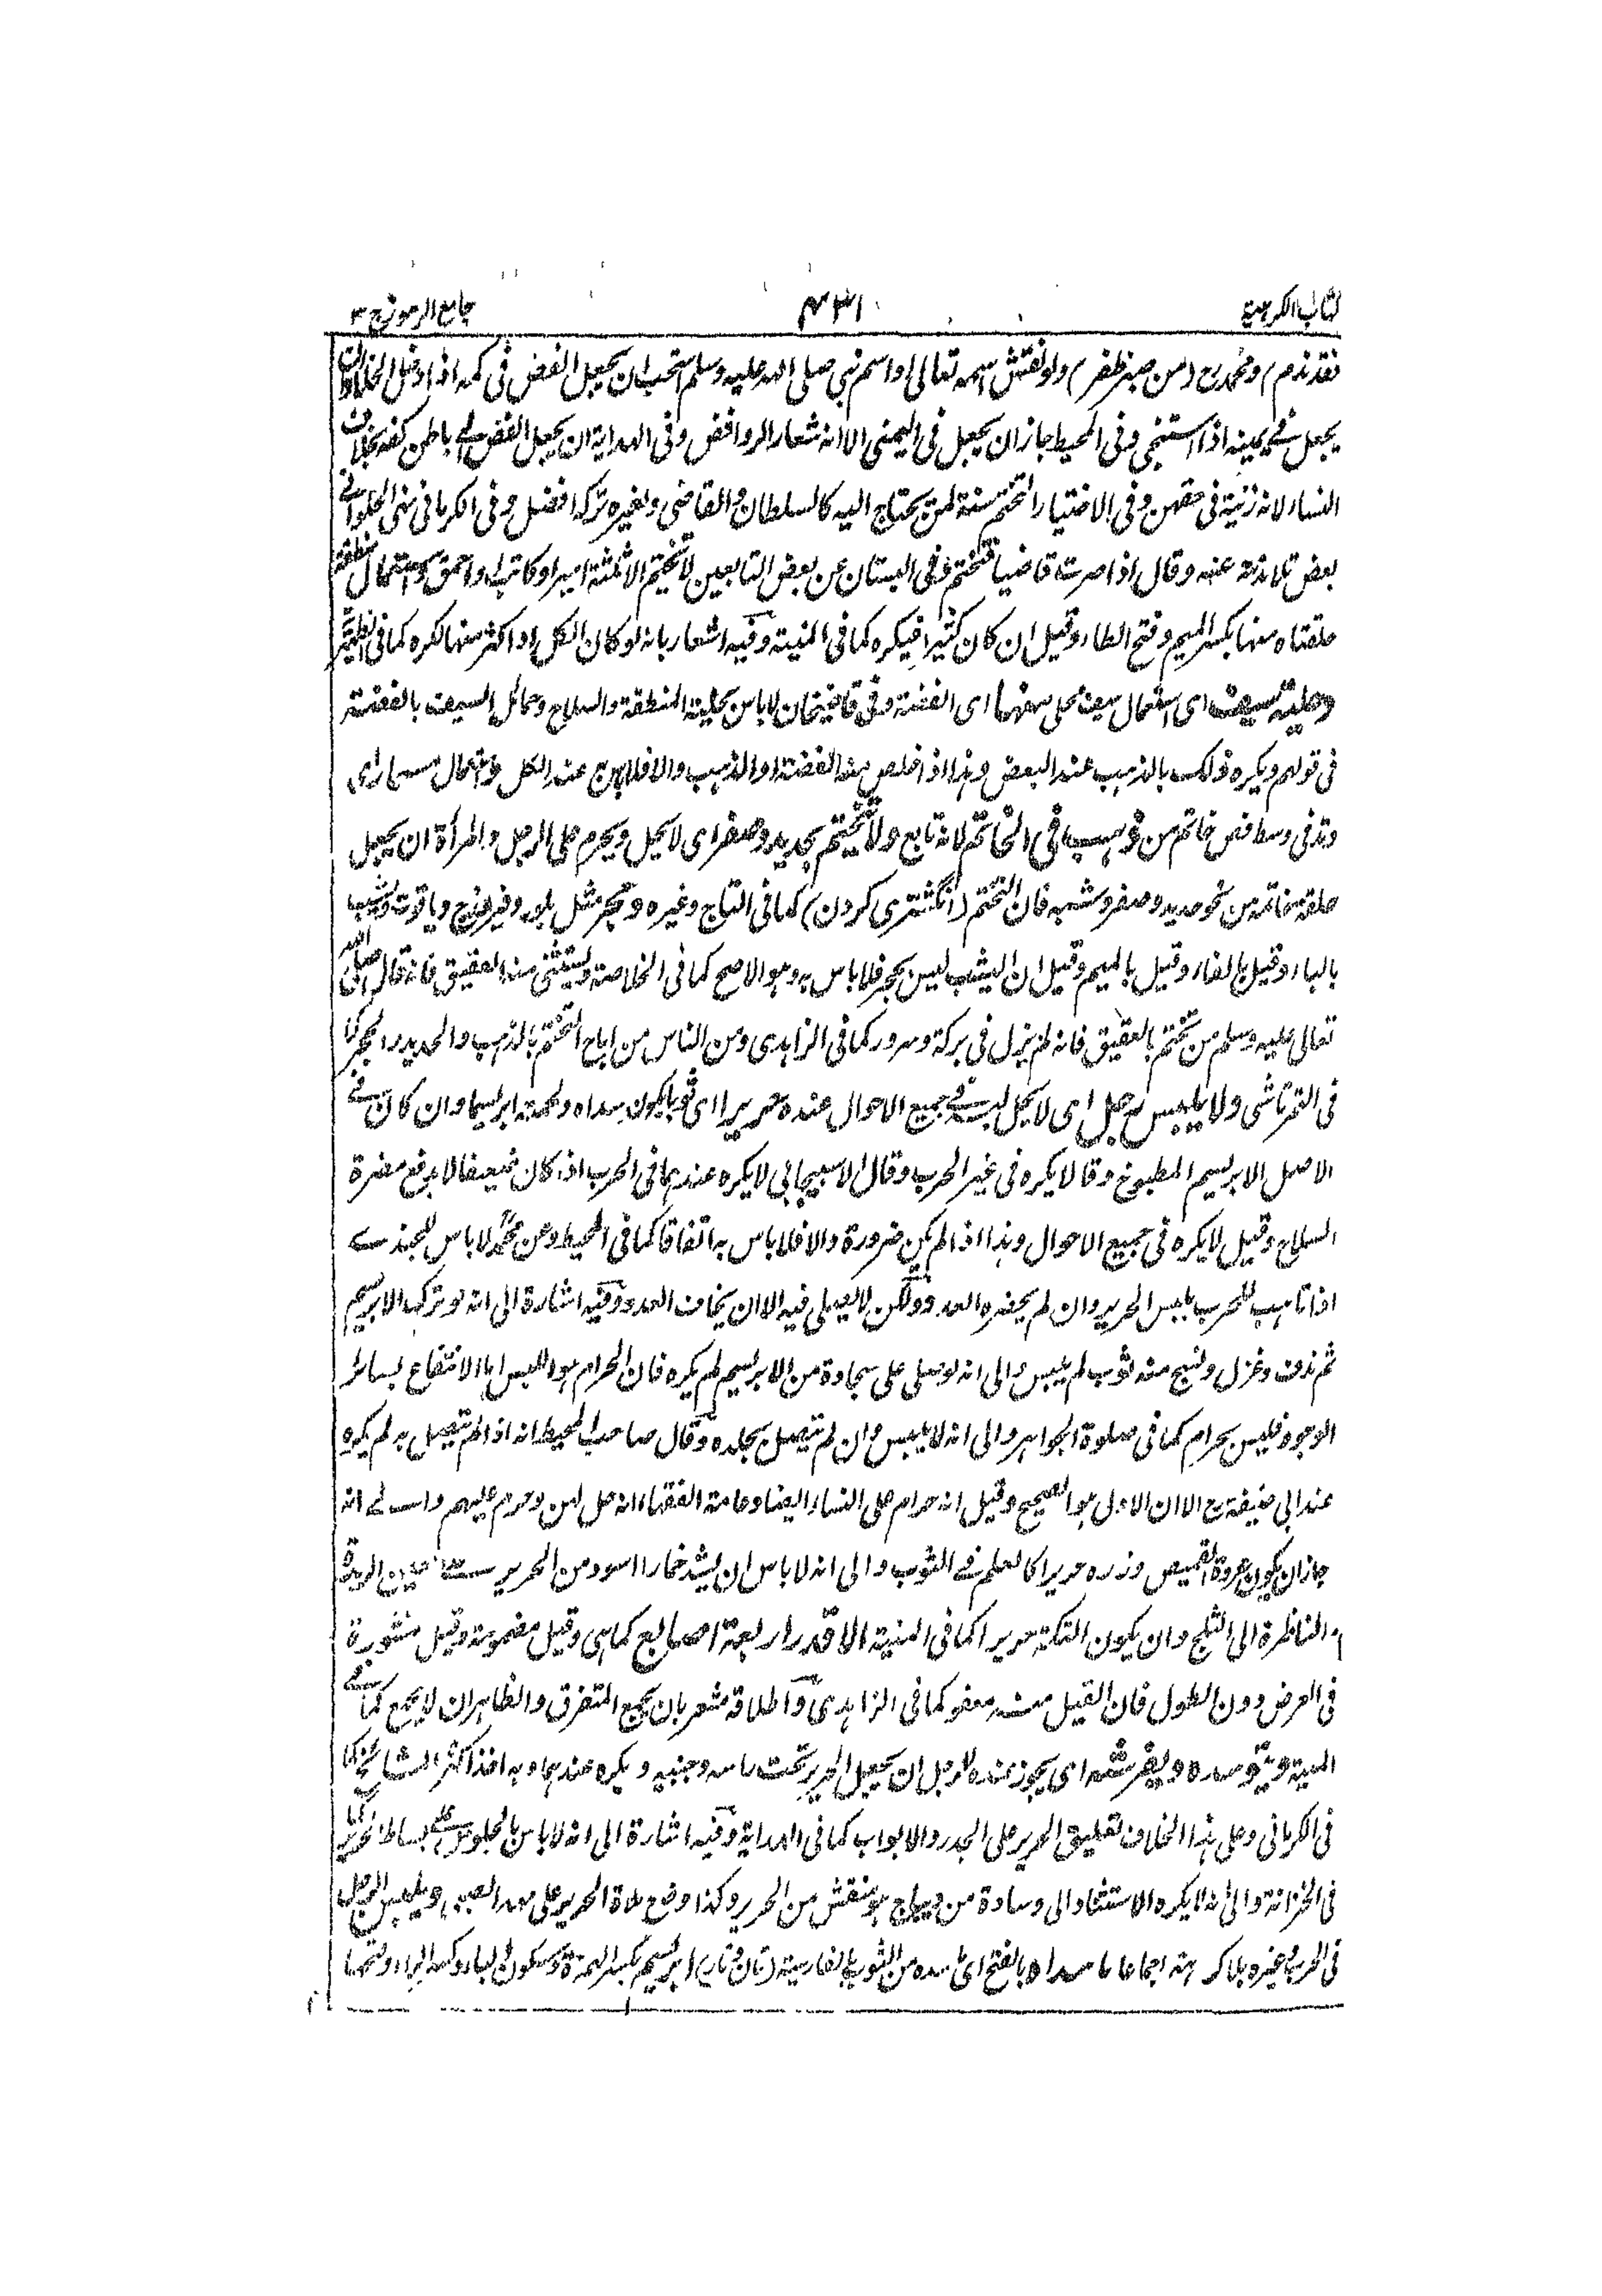 كتاب الكراهية ٣١ جامع الرموز ج ٣
فقد ندم) ومحمد رح (من صبر ظفر) ولو نقش اسمه تعالى او اسم نبي صلى الله عليه وسلم استحب ان يجعل الفص في كمه اذا دخل الخلاء وان
يجعل في يمينه اذا استنجى وفي المحيط جاز ان يجعل في اليمنى الا انه شعار الروافض وفي الهداية ان يجعل الفص الى باطن كفه بخلاف
النساء لانه زينة في حقهن وفي الاختيار التختم سنة لمن يحتاج اليه كالسلطان والقاضي ولغيره تركه افضل وفي الكرماني نهى الحلوائي
بعض تلامذته عنه وقال اذا صرت قاضيا فتختم وفي البستان عن بعض التابعين لا يتختم الا ثلثة امير او كاتب او احمق واستعمال منطقة
حلقتاه منها بكسر الميم وفتح الطاء وقيل ان كان كثيرا فيكره كما في المنية وفيه اشعار بانه لو كان الكل او اكثر منها لكره كما في
وحلية سيف اى استعمال سيف محلى منها اى الفضة وفي قاضيخان لا باس بحلية المنطقة والسلاح وحمائل السيف بالفضة
في قولهم ويكره ذلك بالذهب عند البعض وهذا اذا خلص منه الفضة او الذهب والا فلا باس عند الكل واستعمال مسمار اى
وتد في وسط فص خاتم من ذهب في الخاتم لانه تابع ولا يتختم بحديد وصفر اى لا يحل ويحرم على الرجل والمرأة ان يجعل
حلقة خاتمه من نحو حديد وصفر وشبه فان التختم (انگشترى كردن) كما في التاج وغيره وحجر مثل بلور وفيروزج وياقوت ويشب
بالباء وقيل بالفاء وقيل بالميم وقيل ان اليشب ليس بحجر فلا باس به وهو الاصح كما في الخلاصة ويستثنى منه العقيق فانه قال صلى الله
تعالى عليه وسلم من تختم بالعقيق فانه لم يزل في بركة وسرور كما في الزاهدى ومن الناس من اباح التختم بالذهب والحديد والحجر كما
في التمرتاشى ولا يلبس رجل اى لا يحل لبسه في جميع الاحوال عنده حريرا اى ثوبا يكون سداه ولحمته ابريسما وان كان في
الاصل الابريسم المطبوخ وقالا يكره في غير الحرب وقال الاسبيجابي لا يكره عندهما في الحرب اذا كان ضعيفا لا يدفع مضرة
السلاح وقيل لا يكره في جميع الاحوال وهذا اذا لم يكن ضرورة والا فلا باس به اتفاقا كما في المحيط وعن محمد لا باس للجندى
اذا تاهب للحرب بلبس الحرير وان لم يحضره العدو ولكن لا يصلى فيه الا ان يخاف العدو وفيه اشارة الى انه لو ترك الابريسم
ثم ندف وغزل ونسج منه ثوب لم يلبس والى انه لو صلى على سجادة من الابريسم لم يكره فان الحرام هو اللبس اما الانتفاع بسائر
الوجوه فليس بحرام كما في صلوة الجواهر والى انه لا يلبس وان لم يتصل بجلده وقال صاحب المحيط انه اذا لم يتصل به لم يكره
عند ابي حنيفة رح الا ان الاول هو الصحيح وقيل انه حرام على النساء ايضا وعامة الفقهاء انه حل لهن وحرم عليهم والى انه
جاز ان يكون عروة القميص وزره حريرا كالعلم في الثوب والى انه لا باس ان يشد خمارا اسود من الحرير على العين الرمدة
او الناظرة الى الثلج وان يكون التكة حريرا كما في المنية الا قدر اربعة اصابع كما هى وقيل مضمومة وقيل منشورة
في العرض دون الطول فان القليل منه معفو كما في الزاهدى واطلاقه مشعر بان يجمع المتفرق والظاهر ان لا يجمع كما في
المنية ويتوسده ويفرشه اى يجوز عنده للرجل ان يجعل الحرير تحت راسه وجنبيه ويكره عندهما وبه اخذ اكثر المشائخ كما
في الكرماني وعلى هذا الخلاف تعليق الحرير على الجدر والابواب كما في الهداية وفيه اشارة الى انه لا باس بالجلوس على بساط الحرير كما
في الخزانة والى انه لا يكره الاستناد الى وسادة من ديباج هو منقش من الحرير وكذا وضع ملاءة الحرير على مهد الصبي ويلبس الرجل
في الحرب وغيره بلا كراهة اجماعا ما سداه بالفتح اى مده من الثوب بالفارسية (تان وتار) ابريسم بكسر الهمزة وسكون الباء وكسر الراء وفتحها